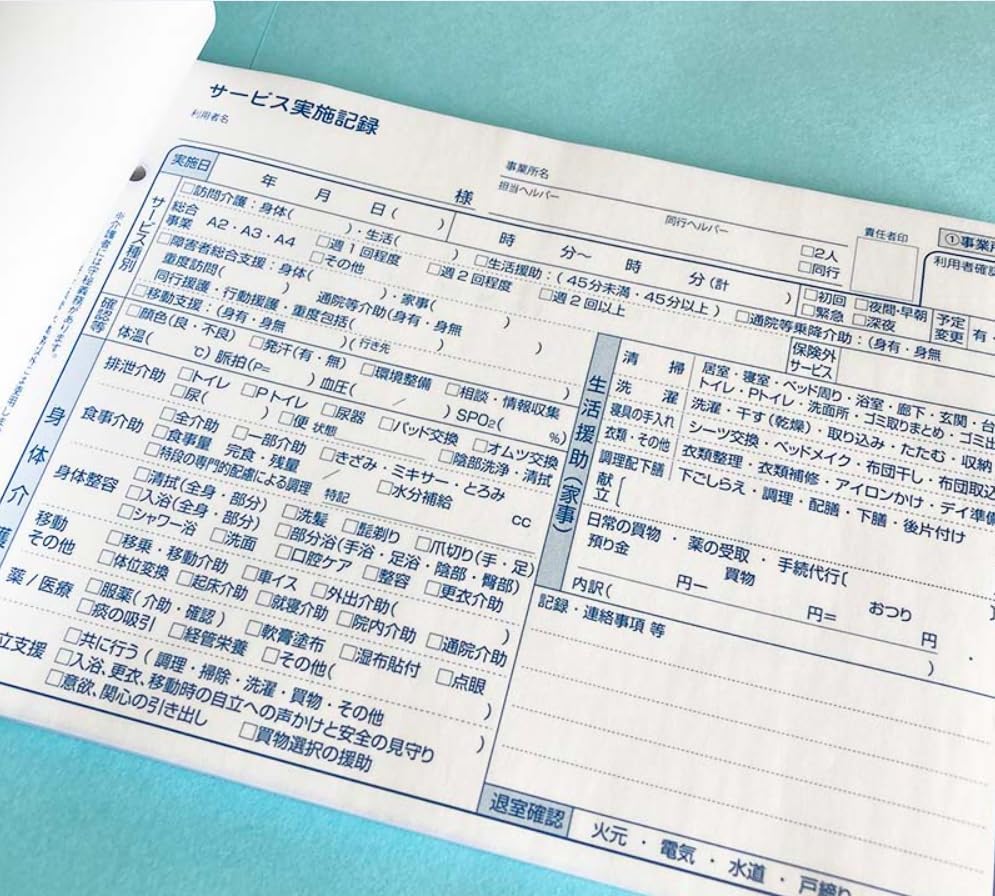 サービス実施記録
利用者名
様
事業所名
担当ヘルパー
同行ヘルパー
□2人
□同行
責任者印
①事業所
利用者確認
実施日 年 月 日( ) 時 分〜 時 分(計 )
□初回 □夜間・早朝
□緊急 □深夜
予定
変更
有・
サービス種別
□訪問介護:身体( )・生活( ) □生活援助:(45分未満・45分以上) □通院等乗降介助:(身有・身無
総合
事業 A2・A3・A4 □週1回程度 □週2回程度 □週2回以上
□その他
保険外
サービス
□障害者総合支援:身体( )・家事( )
重度訪問( ) 通院等介助(身有・身無 )
同行援護・行動援護・重度包括( )
□移動支援:(身有・身無 )(行き先 )
確認等
□顔色(良・不良) □発汗(有・無) □環境整備 □相談・情報収集
体温( ℃) 脈拍(P= ) 血圧( / ) SPO₂( %)
身体介護
排泄介助 □トイレ □Pトイレ □尿器 □パッド交換 □オムツ交換
□尿( ) □便 状態 □陰部洗浄・清拭
食事介助 □全介助 □一部介助 □きざみ・ミキサー・とろみ
□食事量 完食・残量 / □水分補給 cc
□特段の専門的配慮による調理 特記
身体整容 □清拭(全身・部分) □洗髪 □髭剃り □爪切り(手・足)
□入浴(全身・部分) □部分浴(手浴・足浴・陰部・臀部)
□シャワー浴 □洗面 □口腔ケア □整容 □更衣介助
移動
その他
□移乗・移動介助 □車イス □外出介助( )
□体位変換 □起床介助 □就寝介助 □院内介助 □通院介助
薬/医療 □服薬(介助・確認) □軟膏塗布 □湿布貼付 □点眼
□痰の吸引 □経管栄養 □その他( )
立支援 □共に行う(調理・掃除・洗濯・買物・その他 )
□入浴、更衣、移動時の自立への声かけと安全の見守り
□意欲、関心の引き出し □買物選択の援助
生活援助(家事)
清掃 居室・寝室・ベッド周り・浴室・廊下・玄関・台
トイレ・Pトイレ・洗面所・ゴミ取りまとめ・ゴミ出
洗濯 洗濯・干す(乾燥)・取り込み・たたむ・収納
寝具の手入れ シーツ交換・ベッドメイク・布団干し・布団取込
衣類・その他 衣類整理・衣類修補・アイロンかけ・デイ準備
調理配下膳 下ごしらえ・調理・配膳・下膳・後片付け
献立[
日常の買物・薬の受取・手続代行[ ]
預り金 円ー 買物 円= おつり 円
内訳( )
記録・連絡事項等
退室確認 火元・電気・水道・戸締り